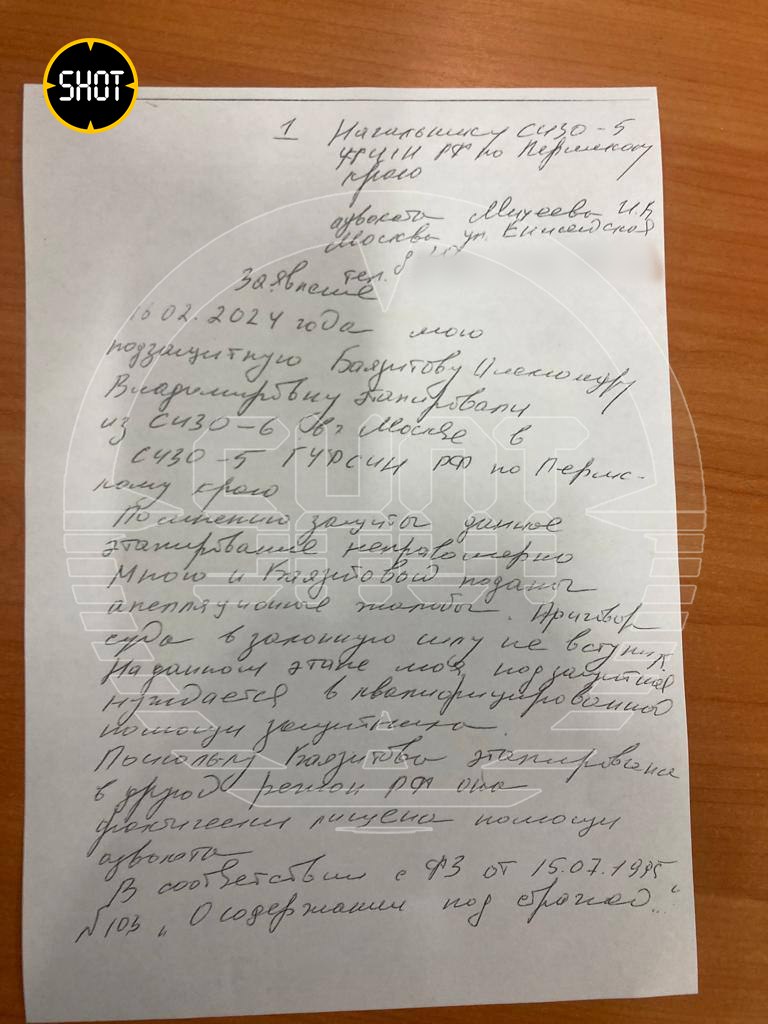 SHOT
1 Начальнику СИЗО-5
ФСИН РФ по Пермскому
краю
адвоката Михеевы И.В
Москва ул. Енисейская
тел. 8
Заявление
16.02.2024 года мою
подзащитную Баязитову Александру
Владимировну этапировали
из СИЗО-6 в г Москве в
СИЗО-5 ГУФСИН РФ по Пермс-
кому краю
По мнению защиты данное
этапирование неправомерно
Мною и Баязитовой поданы
апелляционные жалобы. Приговор
суда в законную силу не вступил.
На данном этапе моя подзащитная
нуждается в квалифицированной
помощи защитника.
Поскольку Баязитова этапирована
в другой регион РФ она
фактически лишена помощи
адвоката
В соответствии с ФЗ от 15.07.1995
№103 „О содержании под стражей..."
SHOT